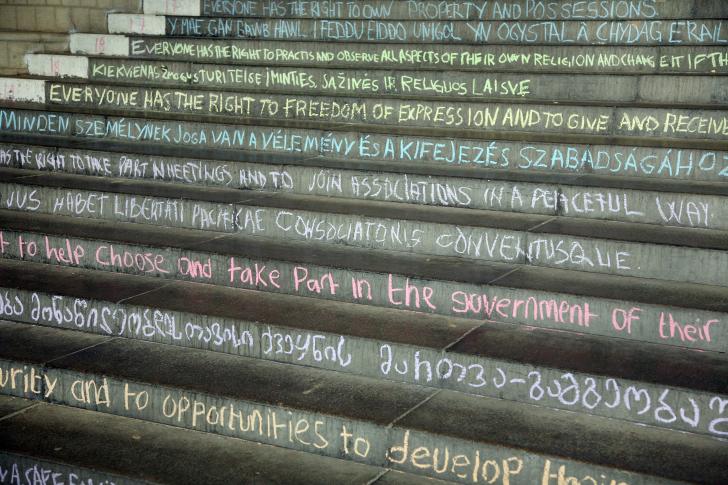 EVERYONE HAS THE RIGHT TO OWN PROPERTY AND POSSESSIONS
17 Y MAE GAN BAWB HAWL I FEDDU EIDDO UNIGOL YN OGYSTAL Â CHYDAG ERAIL
18 EVERYONE HAS THE RIGHT TO PRACTIS AND OBSERVE ALL ASPECTS OF THEIR OWN RELIGION AND CHANGE IT IF TH
18 KIEKVIENAS ŽMOGUS TURI TEISE I MINTIES, SAŽINĖS IR RELIGIJOS LAISVE
EVERYONE HAS THE RIGHT TO FREEDOM OF EXPRESSION AND TO GIVE AND RECEIVE
MINDEN SZEMÉLYNEK JOGA VAN A VÉLEMÉNY ÉS A KIFEJEZÉS SZABADSÁGÁHOZ
HAS THE RIGHT TO TAKE PART IN MEETINGS AND TO JOIN ASSOCIATIONS IN A PEACEFUL WAY.
JUS HABET LIBERTATI PACIFICAE CONSOCIATONIS CONVENTUSQUE.
t to help choose and take part in the government of their
მონაწილეობდეს თავისი ქვეყნის მართვა-გამგეობაშ
urity and to opportunities to develop their